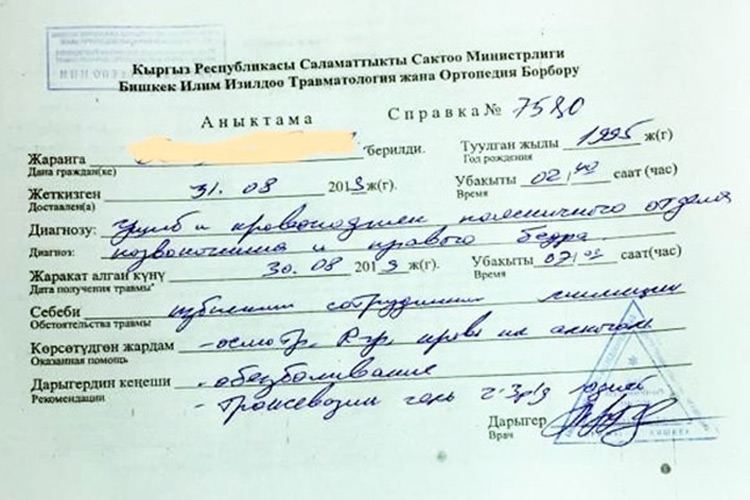 Кыргыз Республикасы Саламаттыкты Сактоо Министрлиги
Бишкек Илим Изилдөө Травматология жана Ортопедия Борбору
Аныктама Справка № 7580
Жаранга берилди. Туулган жылы 1995 ж(г)
Дана граждан(ке) Год рождения
Жеткизген 31.08 2019 ж(г). Убакыты 02,40 саат (час)
Доставлен(а) Время
Диагнозу: Ушиб и кровоподтек поясничного отдела
Диагноз: позвоночника и правого бедра.
Жаракат алган күнү 30.08 2019 ж(г). Убакыты саат(час)
Дата получения травмы Время
Себеби избиении сотрудниками милиции
Обстоятельства травмы
Көрсөтүдгөн жардам - осмотр, R-гр, крови на алкоголь
Оказанная помощь
Дарыгердин кеңеши - обезболивание
Рекомендации - гель 2-3 р/д 
Дарыгер
Врач
БИШКЕК